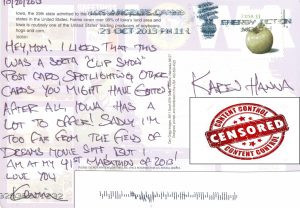 10/20/2013
Iowa, the 29th state admitted to the
states in the United States. Farms cover over 90% of Iowa's land area and
Iowa is routinely one of the United States' leading producers of soybeans,
hogs and corn.
21 OCT 2013 PM 11 L
HEY, MOM! I LIKED THAT THIS
WAS A SORTA "CLIP SHOW"
POST CARD SPOTLIGHTING OTHER
CARDS YOU MIGHT HAVE GOTTEN
AFTER ALL, IOWA HAS A
LOT TO OFFER! SADLY I'M
TOO FAR FROM THE FIELD OF
DREAMS MOVIE SITE, BUT I
AM AT MY 41ST MARATHON OF 2013!
LOVE YOU
KAREN HANNA
CONTENT CONTROL
CENSORED
CONTENT CONTROL